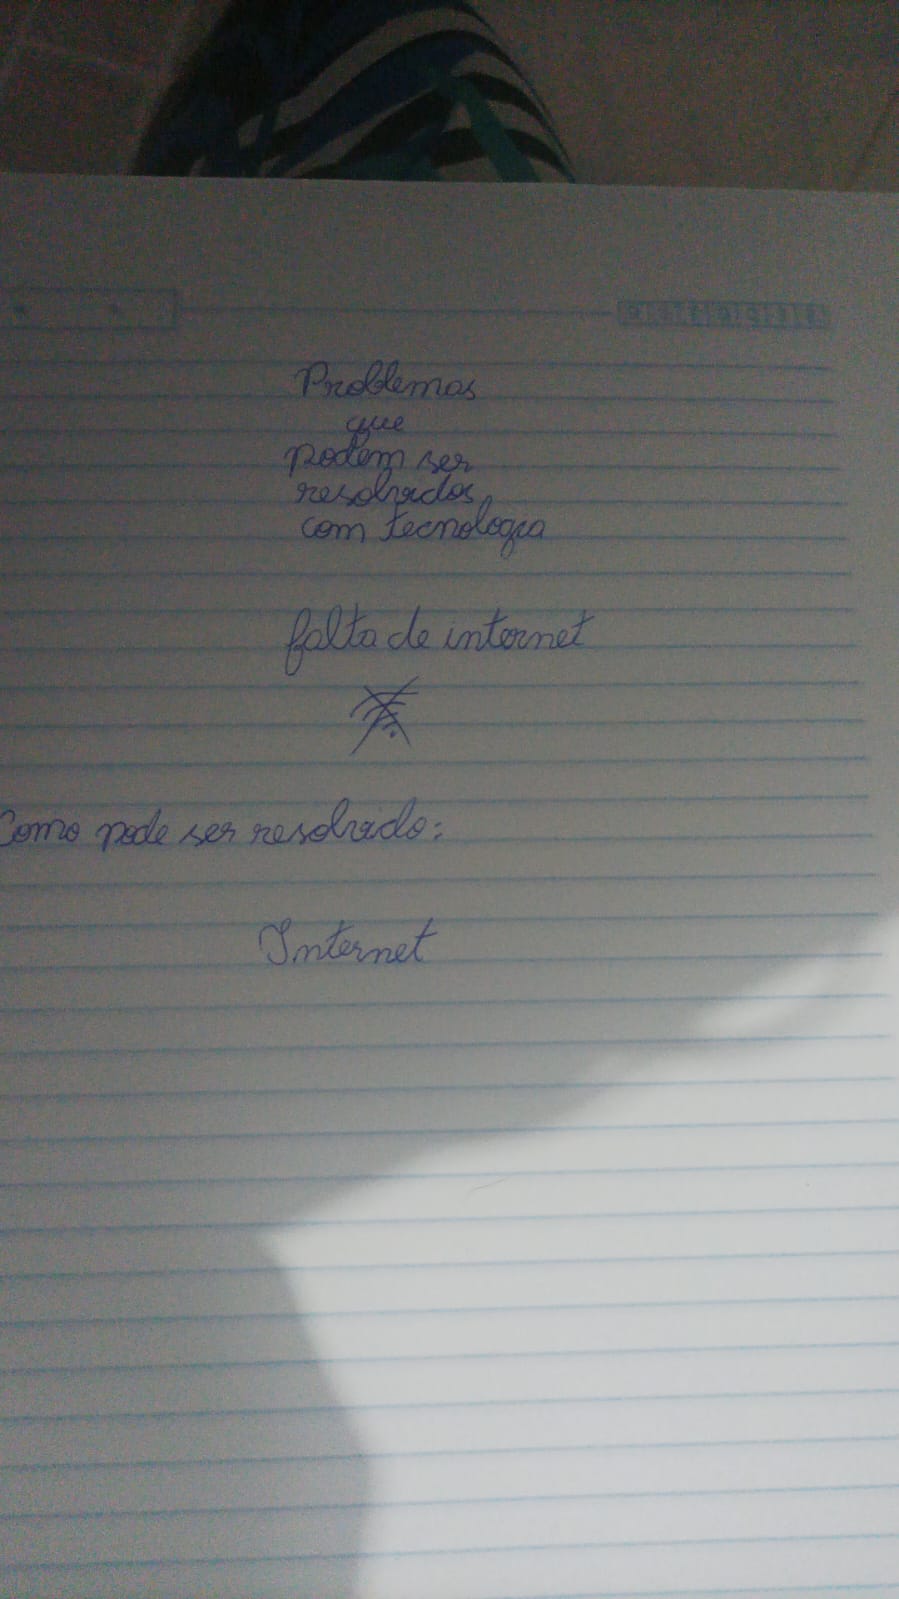 Problemas
que
podem ser
resolvidos
com tecnologia
falta de internet
Como pode ser resolvido:
Internet